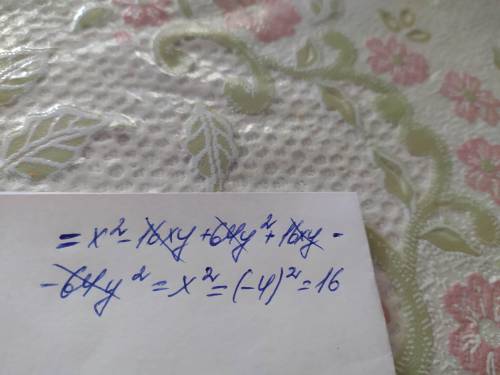 = x² - 16xy + 64y² + 16xy -
- 64y² = x² = (-4)² = 16